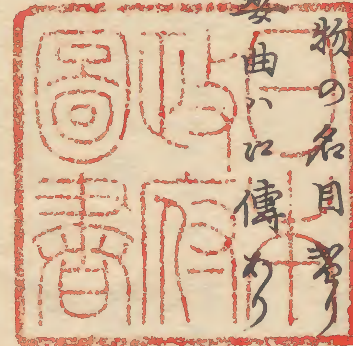 物の名目計り
委曲ハ口傳あり
日本
政府
圖書